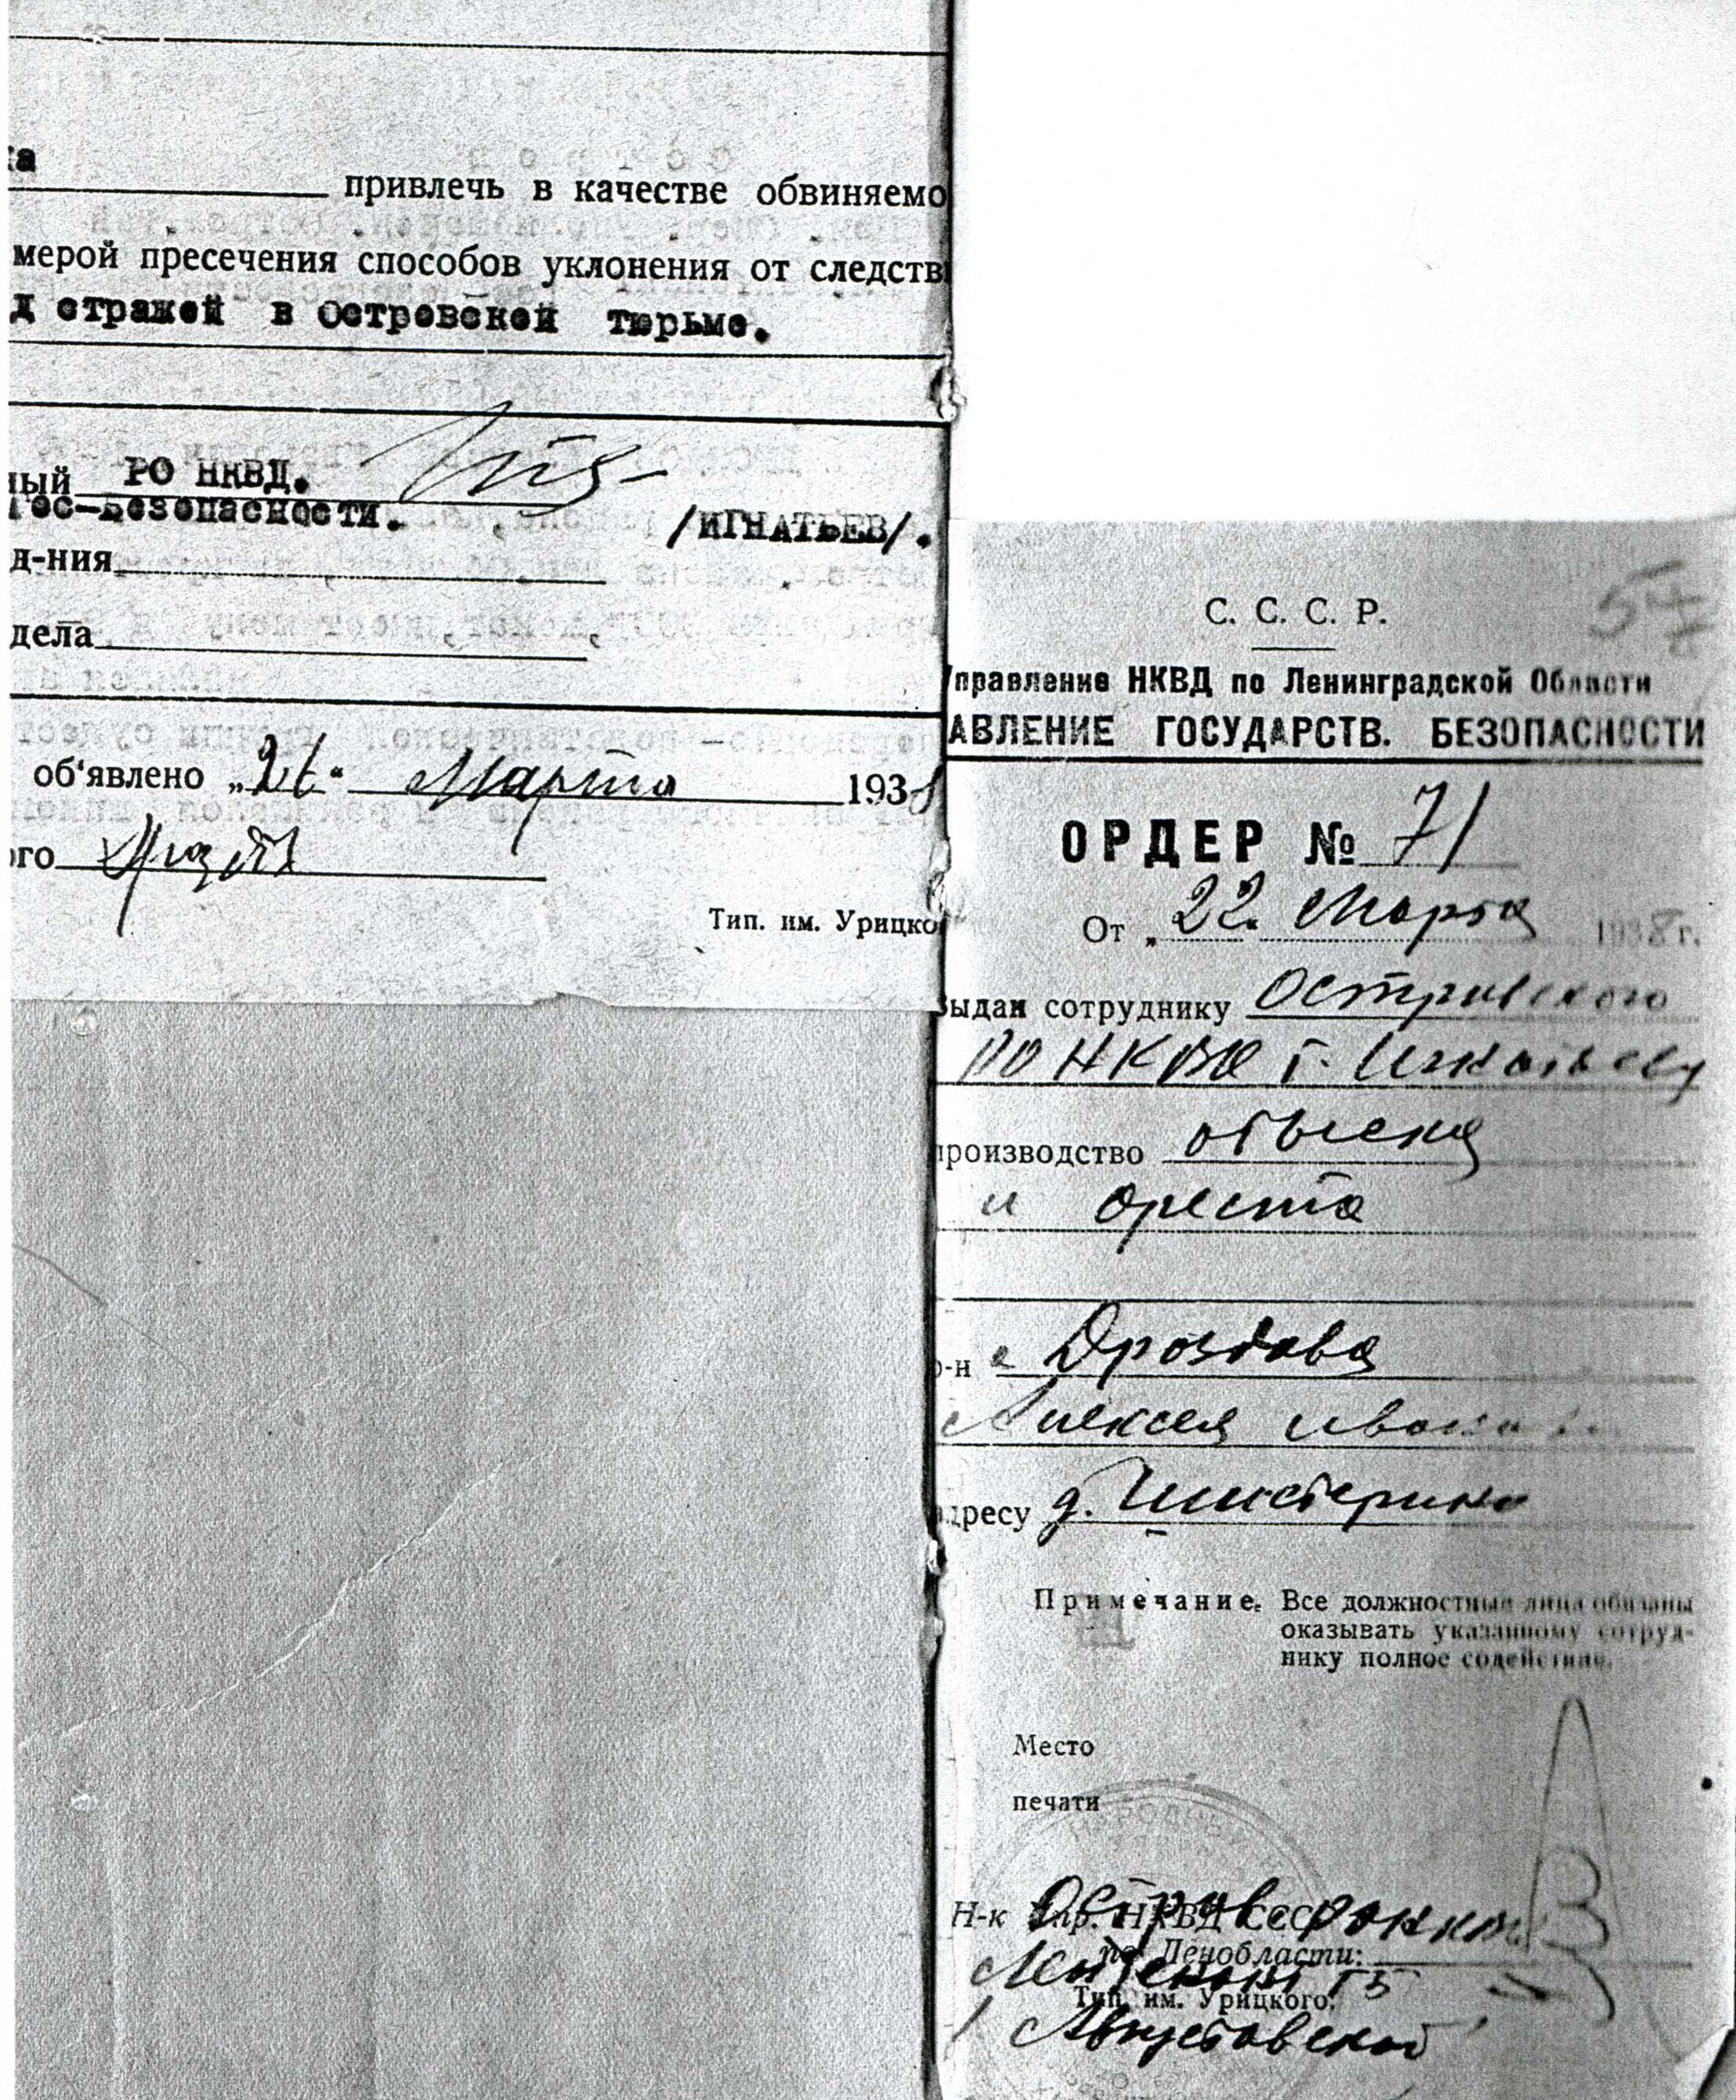 ка
привлечь в качестве обвиняемо
мерой пресечения способов уклонения от следств
д стражей в Островской тюрьме.
ный РО НКВД.
Гос-Безопасности. /ИГНАТЬЕВ/.
д-ния
дела
об'явлено „26“ Марта 1938
ого
Тип. им. Урицко
57
С. С. С. Р.
Управление НКВД по Ленинградской Области
АВЛЕНИЕ ГОСУДАРСТВ. БЕЗОПАСНОСТИ
ОРДЕР № 71
От „22. Марта 1938 г.
Выдан сотруднику Островского
РО НКВД т. Игнатьеву
производство обыска
и ареста
р-н е Дроздова
Алексея Иванов
дресу д.
Примечание. Все должностные лица обязаны
оказывать указанному сотруд-
нику полное содействие.
Место
печати
Н-к Упр. НКВД СССР
по Ленобласти:
Лейтенант ГБ
Тип. им. Урицкого.
/ Августовский /